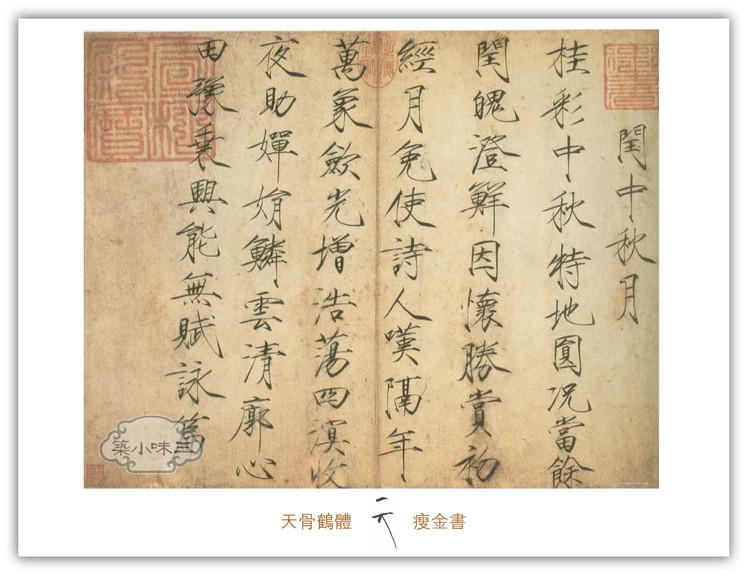 閏中秋月
桂彩中秋特地圓況當餘
閏魄澄鮮因懷勝賞初
經月免使詩人嘆隔年
萬象歛光增浩蕩四溟收
夜助嬋娟鱗雲清廓心
田豫乗興能無賦詠篇
三味小築
天骨鶴體
瘦金書